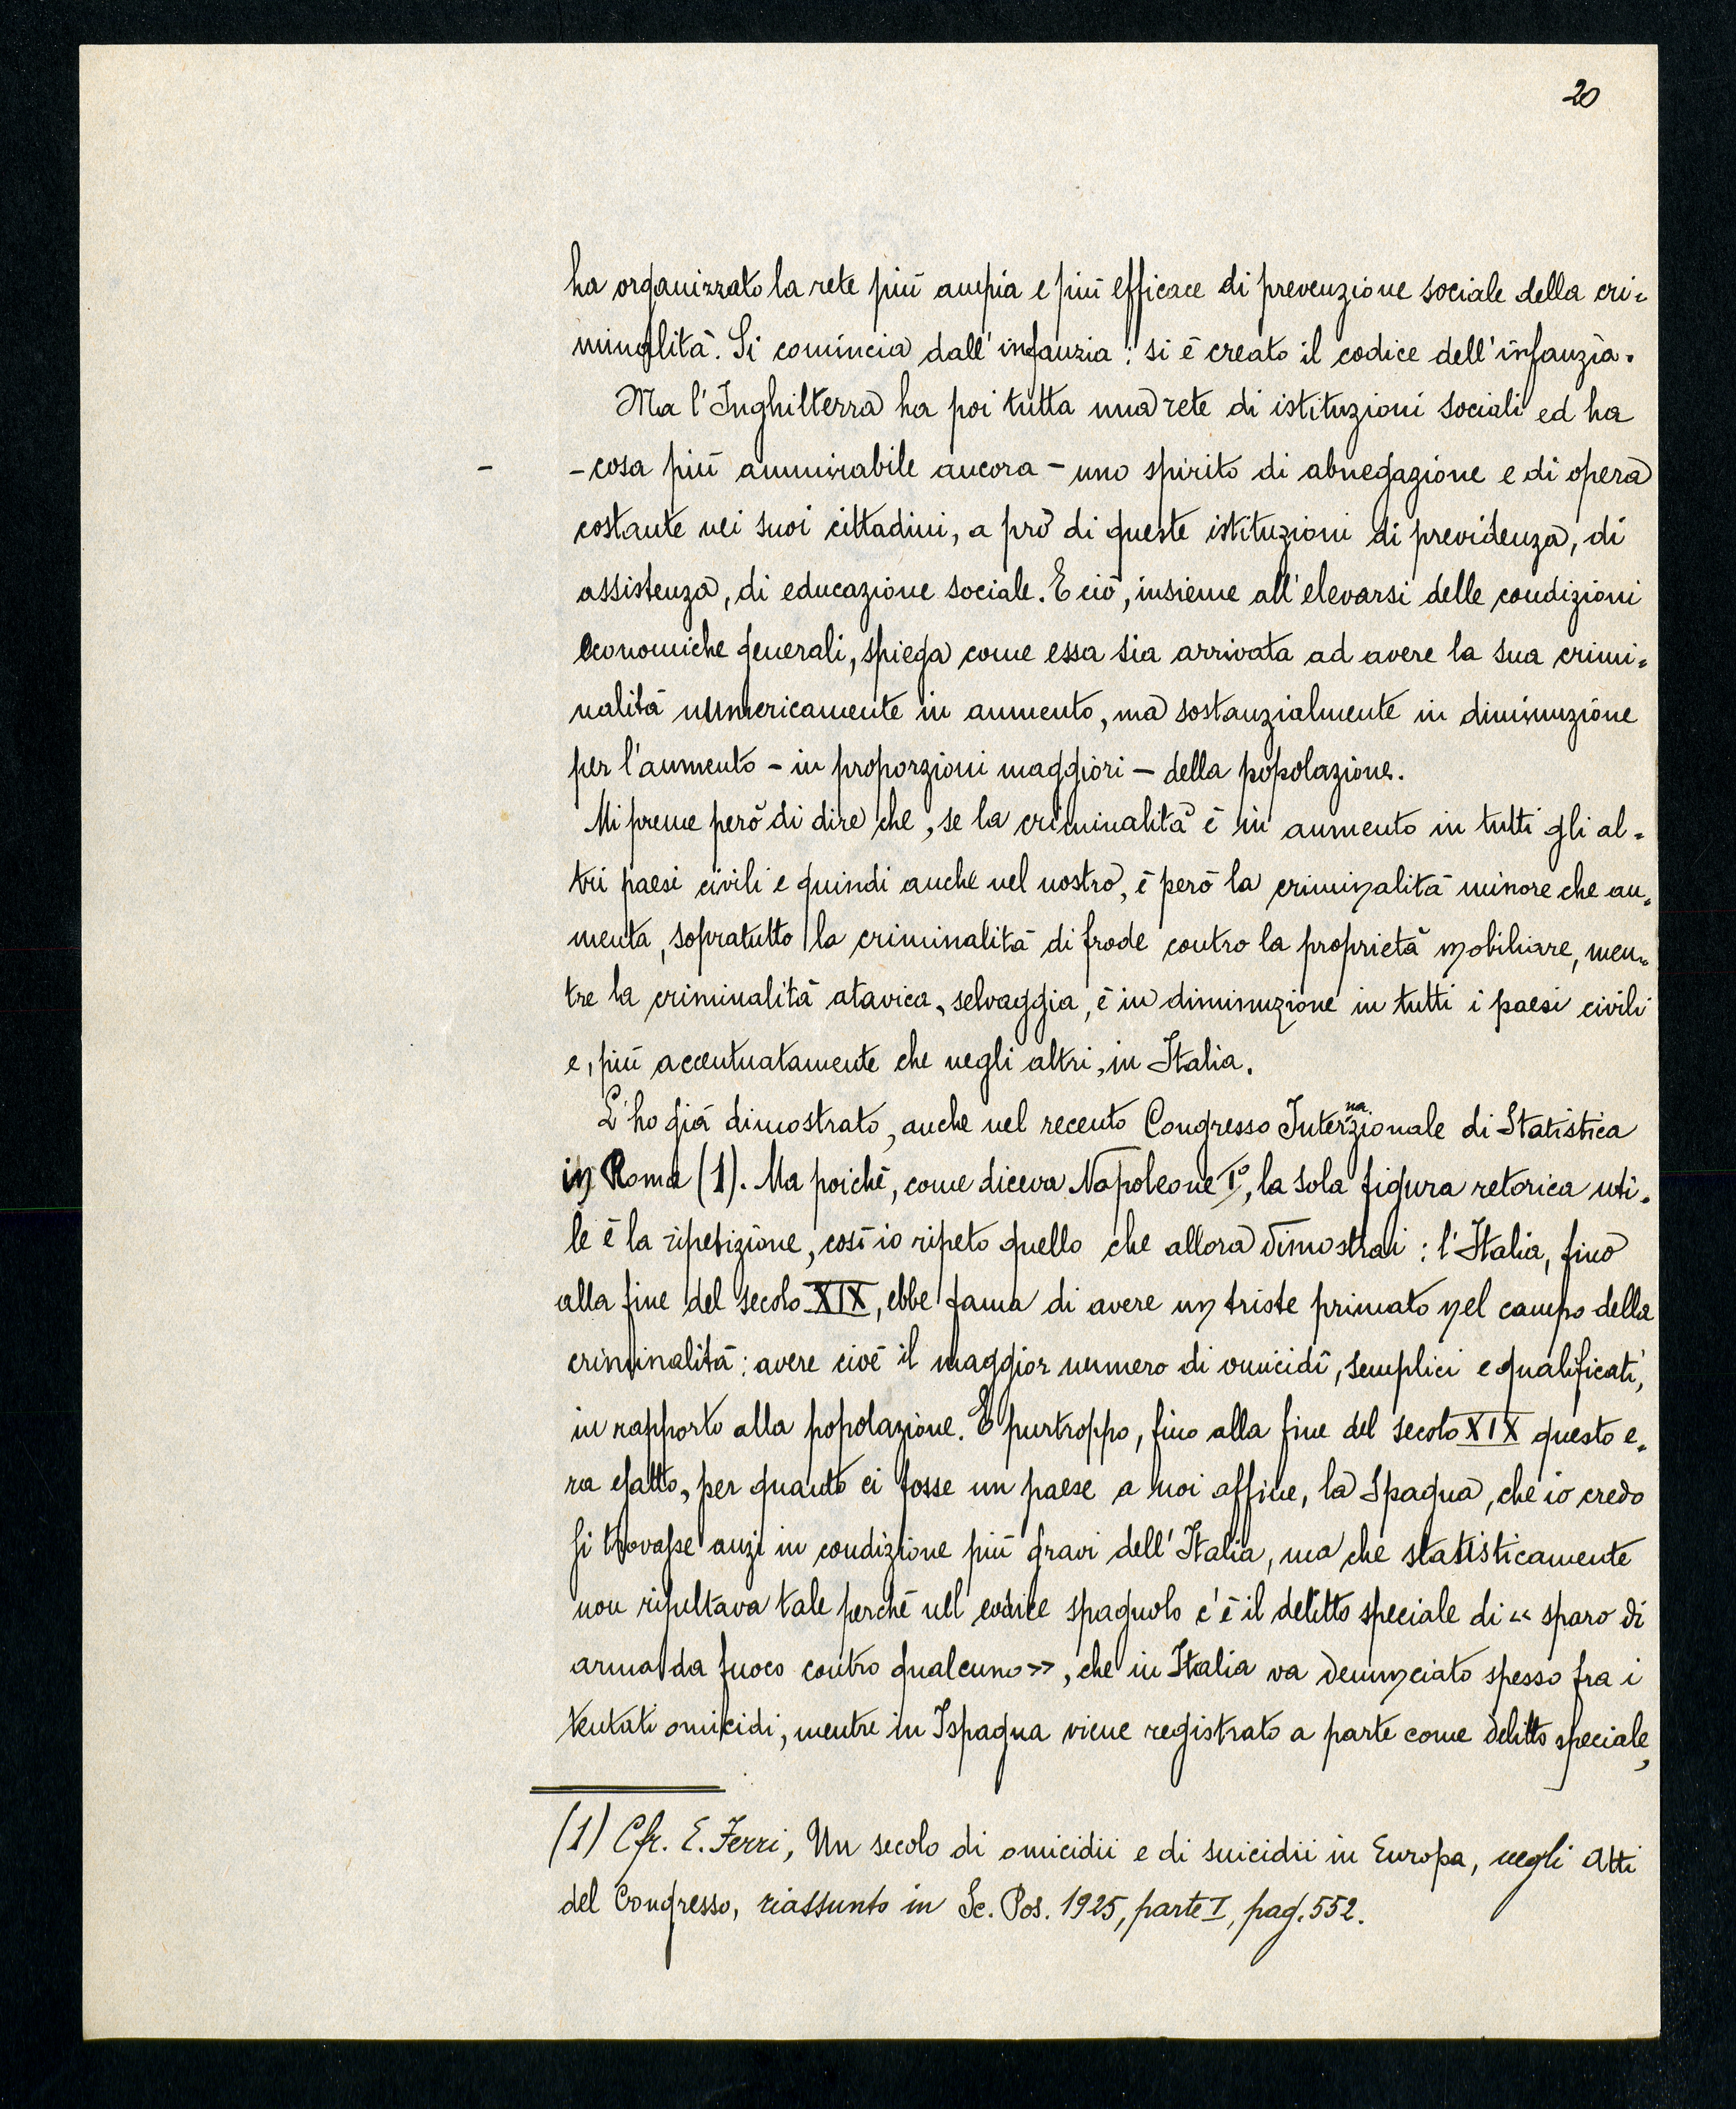 20
ha organizzato la rete più ampia e più efficace di prevenzione sociale della cri=
minalità. Si comincia dall'infanzia: si è creato il codice dell'infanzia.
Ma l'Inghilterra ha poi tutta una rete di istituzioni sociali ed ha
- - cosa più ammirabile ancora - uno spirito di abnegazione e di opera
costante nei suoi cittadini, a prò di queste istituzioni di previdenza, di
assistenza, di educazione sociale. E ciò, insieme all'elevarsi delle condizioni
economiche generali, spiega come essa sia arrivata ad avere la sua crimi=
nalità numericamente in aumento, ma sostanzialmente in diminuzione
per l'aumento - in proporzioni maggiori - della popolazione.
Mi preme però di dire che, se la criminalità è in aumento in tutti gli al=
tri paesi civili e quindi anche nel nostro, è però la criminalità minore che au=
menta, sopratutto la criminalità di frode contro la proprietà mobiliare, men=
tre la criminalità atavica, selvaggia, è in diminuzione in tutti i paesi civili
e, più accentuatamente che negli altri, in Italia.
L'ho già dimostrato, anche nel recento Congresso Internazionale di Statistica
in Roma (1). Ma poichè, come diceva Napoleone I°, la sola figura retorica uti=
le è la ripetizione, così io ripeto quello che allora dimostrai: l'Italia, fino
alla fine del secolo XIX, ebbe fama di avere un triste primato nel campo della
criminalità: avere cioè il maggior numero di omicidî, semplici e qualificati,
in rapporto alla popolazione. E purtroppo, fino alla fine del secolo XIX questo e=
ra esatto, per quanto ci fosse un paese a noi affine, la Spagna, che io credo
si trovasse anzi in condizione più gravi dell'Italia, ma che statisticamente
non risultava tale perchè nell codice spagnuolo c'è il delitto speciale di « sparo di
arma da fuoco contro qualcuno», che in Italia va denunciato spesso fra i
tentati omicidi, mentre in Ispagna viene registrato a parte come delitto speciale,
(1) Cfr. E. Ferri, Un secolo di omicidii e di suicidii in Europa, negli Atti
del Congresso, riassunto in Sc. Pos. 1925, parte I, pag. 552.